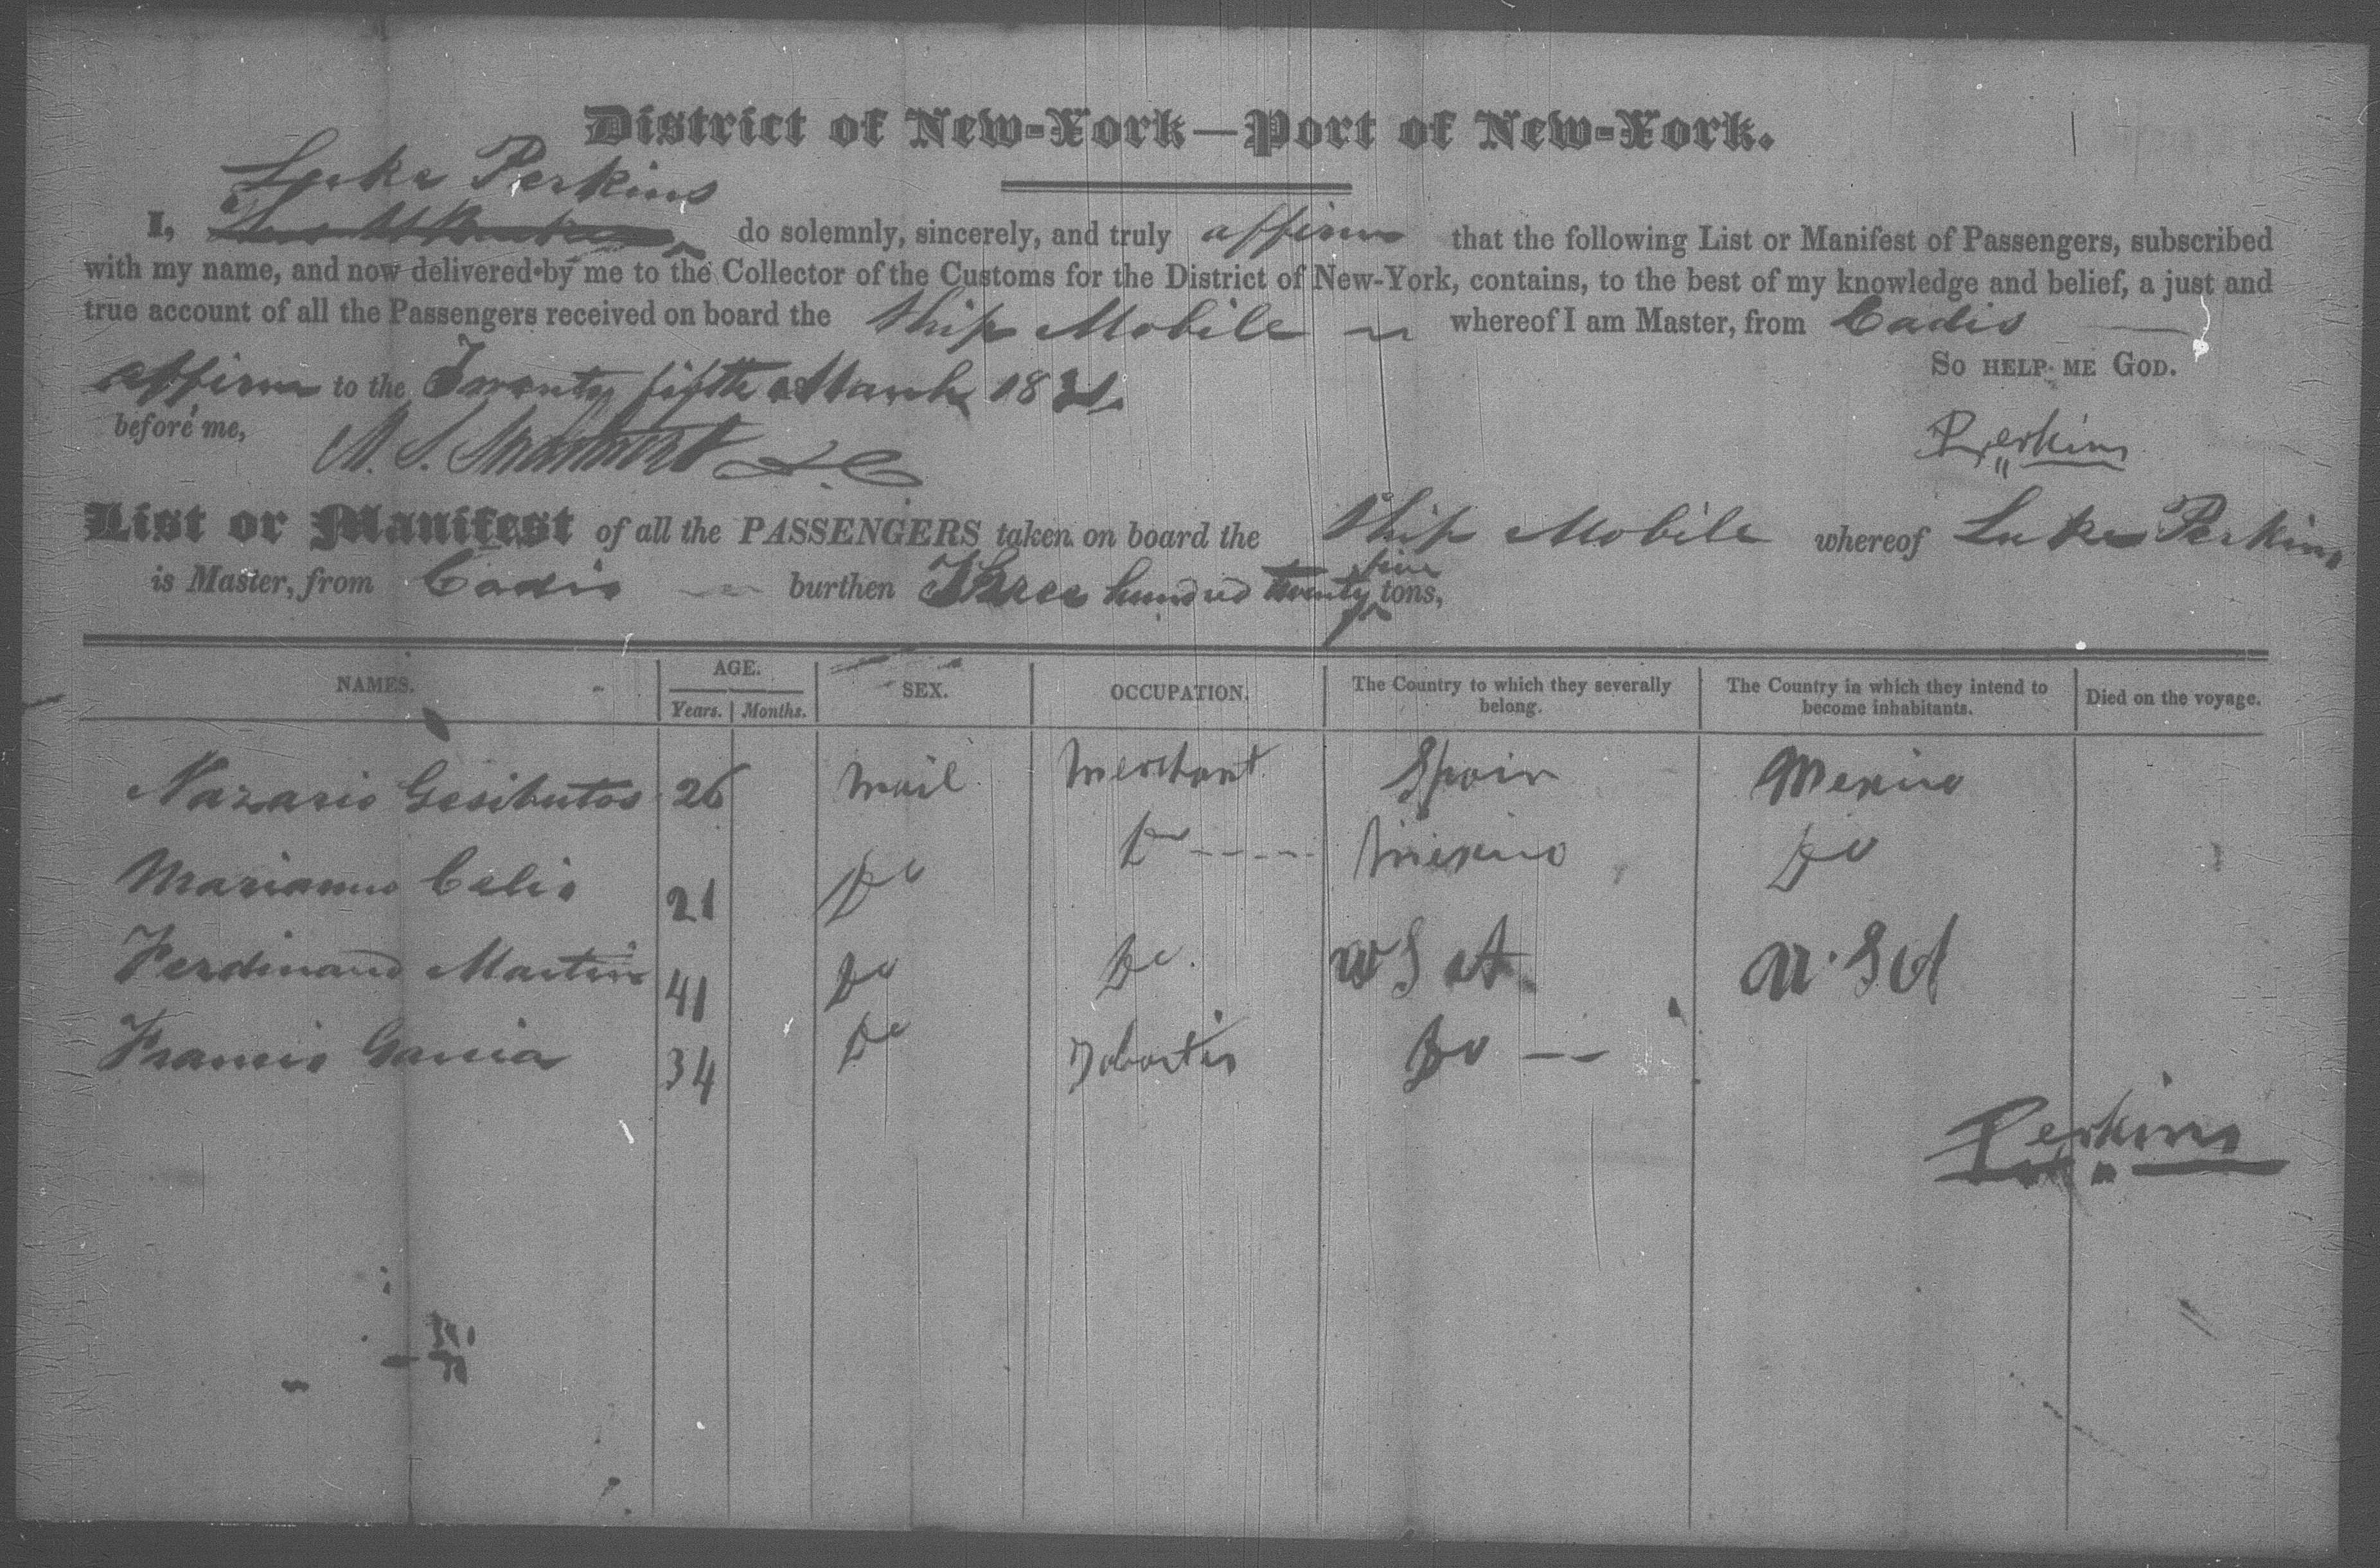 District of New-York—Port of New-York.
Luke Perkins
I, do solemnly, sincerely, and truly affirm that the following List or Manifest of Passengers, subscribed
with my name, and now delivered by me to the Collector of the Customs for the District of New-York, contains, to the best of my knowledge and belief, a just and
true account of all the Passengers received on board the Ship Mobile whereof I am Master, from Cadis
So HELP ME GOD.
affirm to the Twenty fifth March 1831
before me,
Perkins
List or Manifest of all the PASSENGERS taken on board the Ship Mobile whereof Luke Perkins
is Master, from Cadis burthen Three hundred twenty five tons,
NAMES. AGE. SEX. OCCUPATION. The Country to which they severally belong. The Country in which they intend to become inhabitants. Died on the voyage.
Years. Months.
Nazario 26 Mail Merchant Spain Mexico
Mariano Celis 21 Do Do Mexico Do
Ferdinand Martin 41 Do Do U S A U.S A
Francis Garcia 34 Do Do
Perkins